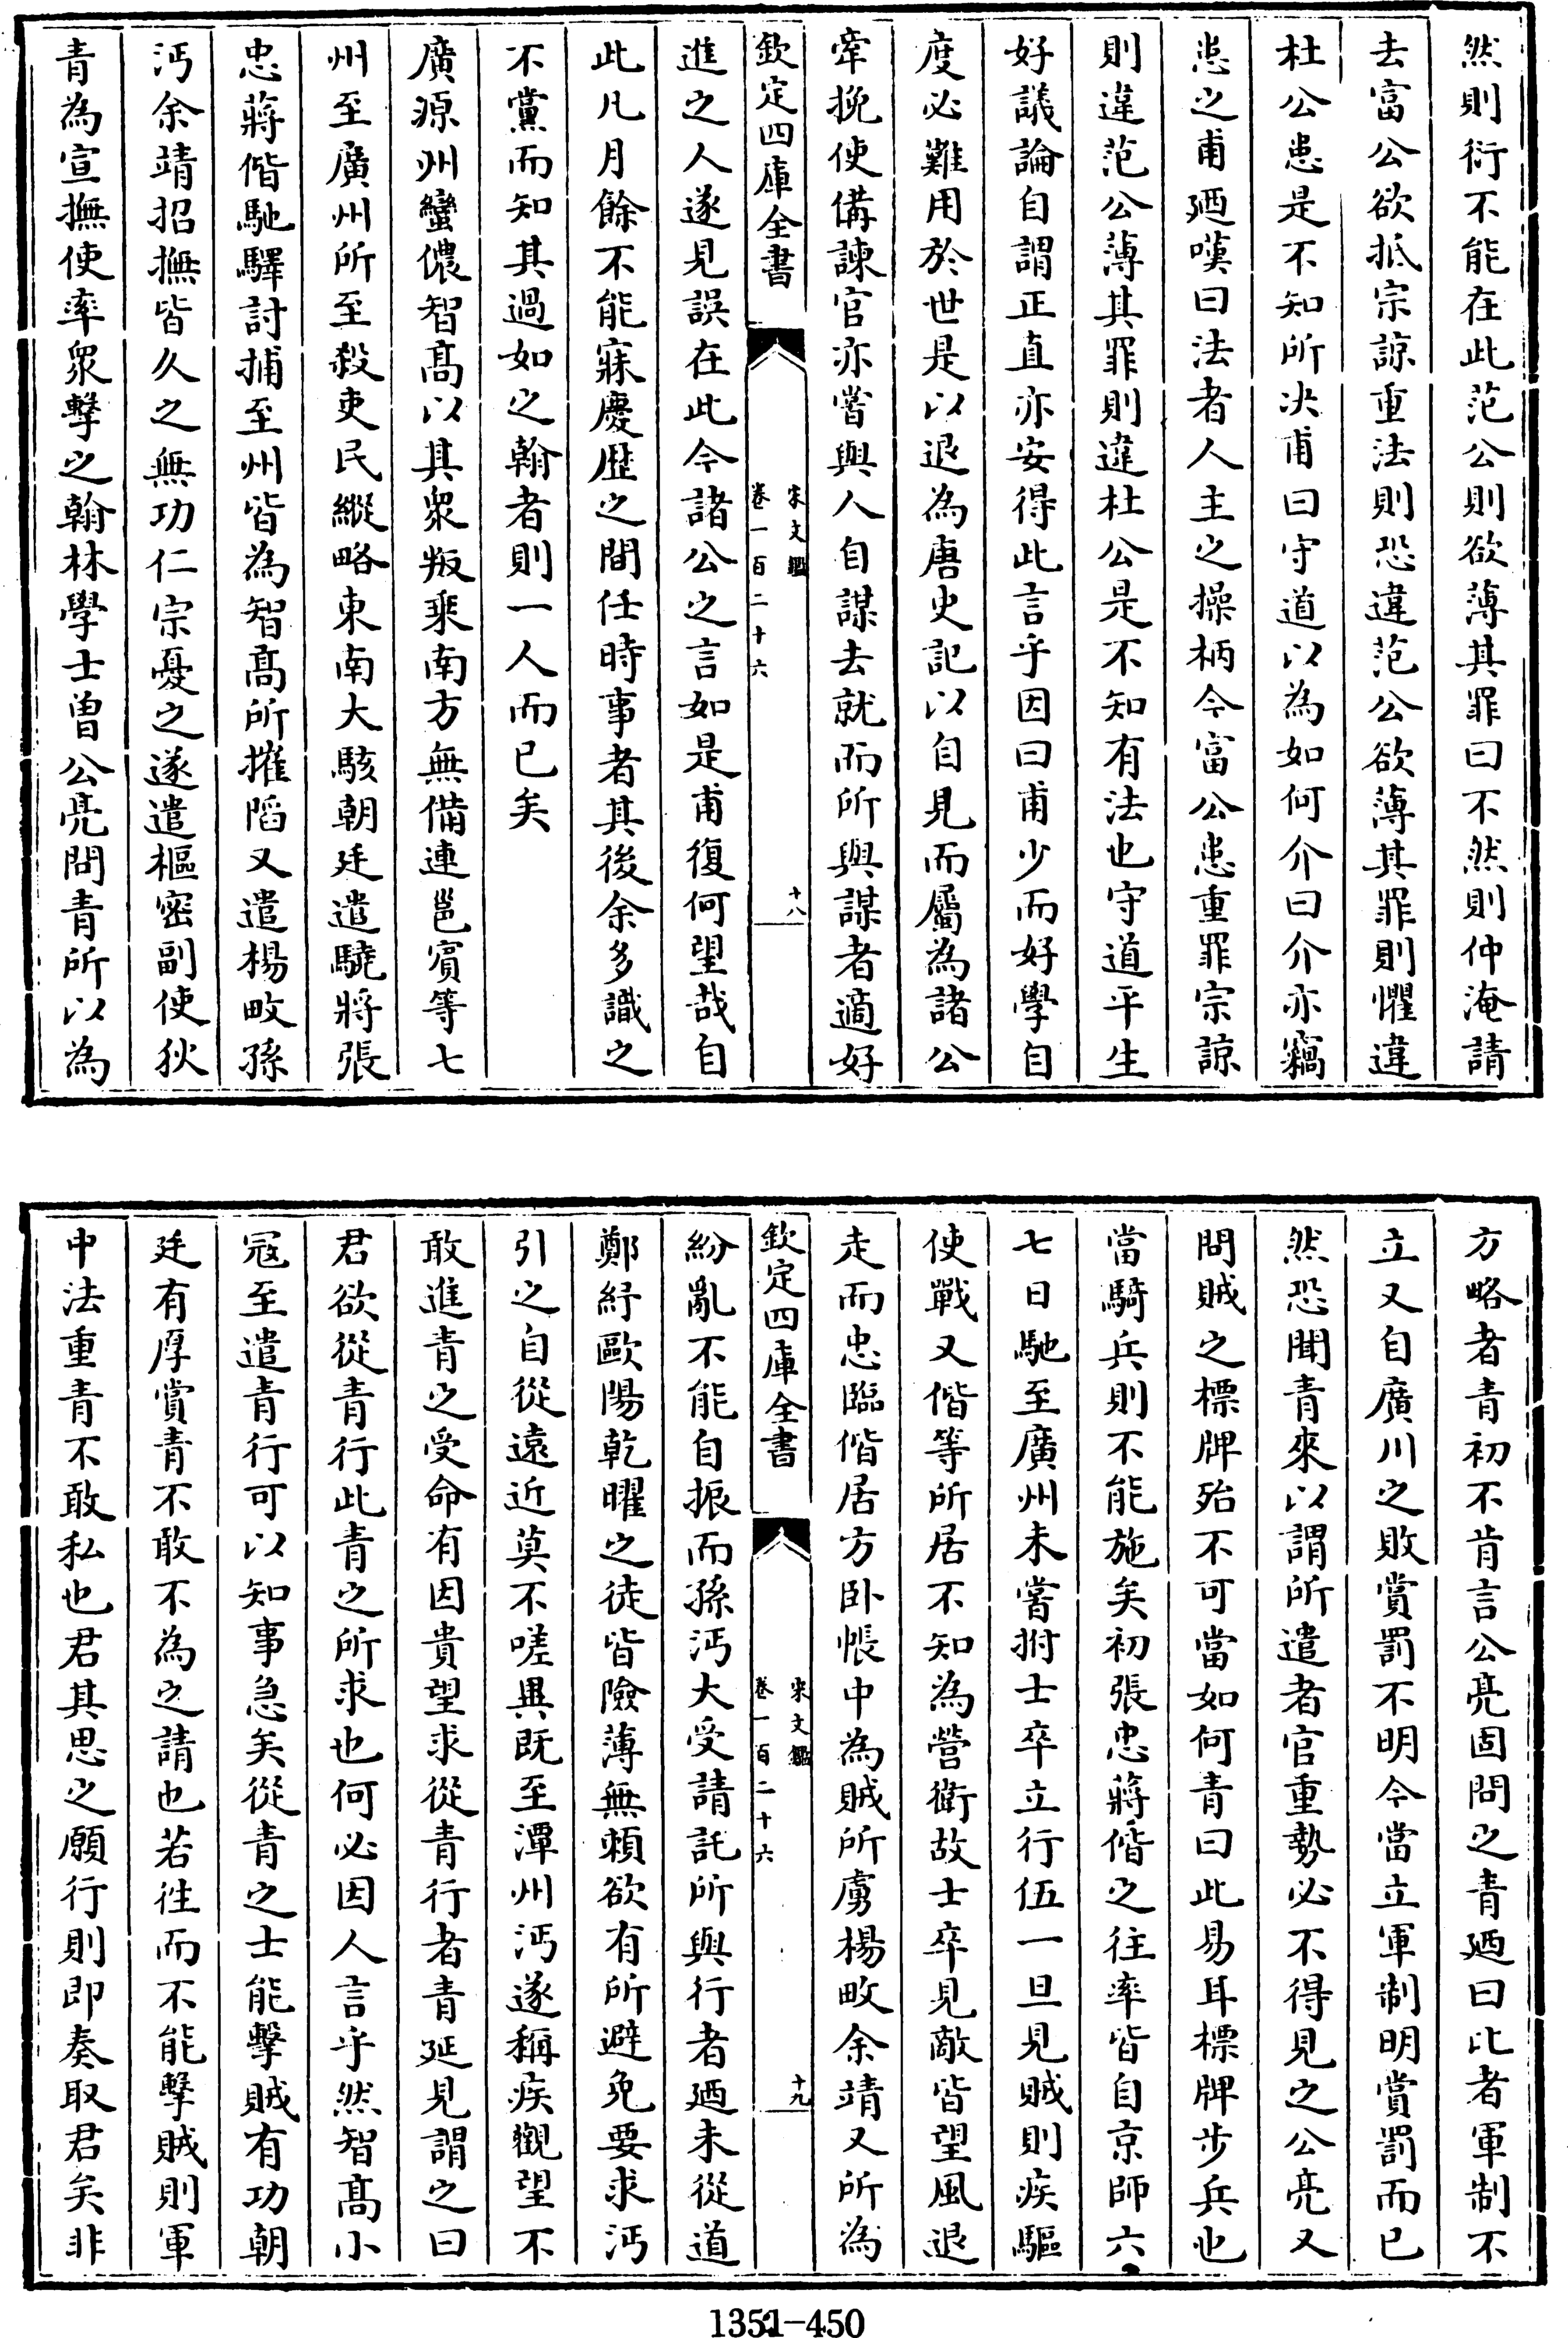 然則衍不能在此范公則欲薄其罪曰不然則仲淹請
去富公欲抵宗諒重法則恐違范公欲薄其罪則懼違
杜公患是不知所决甫曰守道以為如何介曰介亦竊
患之甫廼嘆曰法者人主之操柄今富公患重罪宗諒
則違范公薄其罪則違杜公是不知有法也守道平生
好議論自謂正直亦安得此言乎因曰甫少而好學自
度必難用於世是以退為唐史記以自見而屬為諸公
牽挽使備諫官亦嘗與人自謀去就而所與謀者適好
欽定四庫全書
宋文鑑
卷一百二十六
十八
進之人遂見誤在此今諸公之言如是甫復何望哉自
此凡月餘不能寐慶歴之間任時事者其後余多識之
不黨而知其過如之翰者則一人而已矣
廣源州蠻儂智髙以其衆叛乘南方無備連邕賓等七
州至廣州所至殺吏民縱略東南大駭朝廷遣驍將張
忠蔣偕馳驛討捕至州皆為智髙所摧䧟又遣楊畋孫
沔余靖招撫皆久之無功仁宗憂之遂遣樞密副使狄
青為宣撫使率衆擊之翰林學士曽公亮問青所以為
方略者青初不肯言公亮固問之青廼曰比者軍制不
立又自廣川之敗賞罰不明今當立軍制明賞罰而已
然恐聞青來以謂所遣者官重勢必不得見之公亮又
問賊之標牌殆不可當如何青曰此易耳標牌步兵也
當騎兵則不能施矣初張忠蔣偕之往率皆自京師六
七日馳至廣州未嘗拊士卒立行伍一旦見賊則疾驅
使戰又偕等所居不知為營衛故士卒見敵皆望風退
走而忠臨偕居方卧帳中為賊所虜楊畋余靖又所為
欽定四庫全書
宋文鑑
卷一百二十六
十九
紛亂不能自振而孫沔大受請託所與行者廼朱從道
鄭紓歐陽乾曜之徒皆險薄無賴欲有所避免要求沔
引之自從遠近莫不嗟異既至潭州沔遂稱疾觀望不
敢進青之受命有因貴望求從青行者青延見謂之曰
君欲從青行此青之所求也何必因人言乎然智髙小
冦至遣青行可以知事急矣從青之士能擊賊有功朝
廷有厚賞青不敢不為之請也若往而不能擊賊則軍
中法重青不敢私也君其思之願行則即奏取君矣非
1351-450